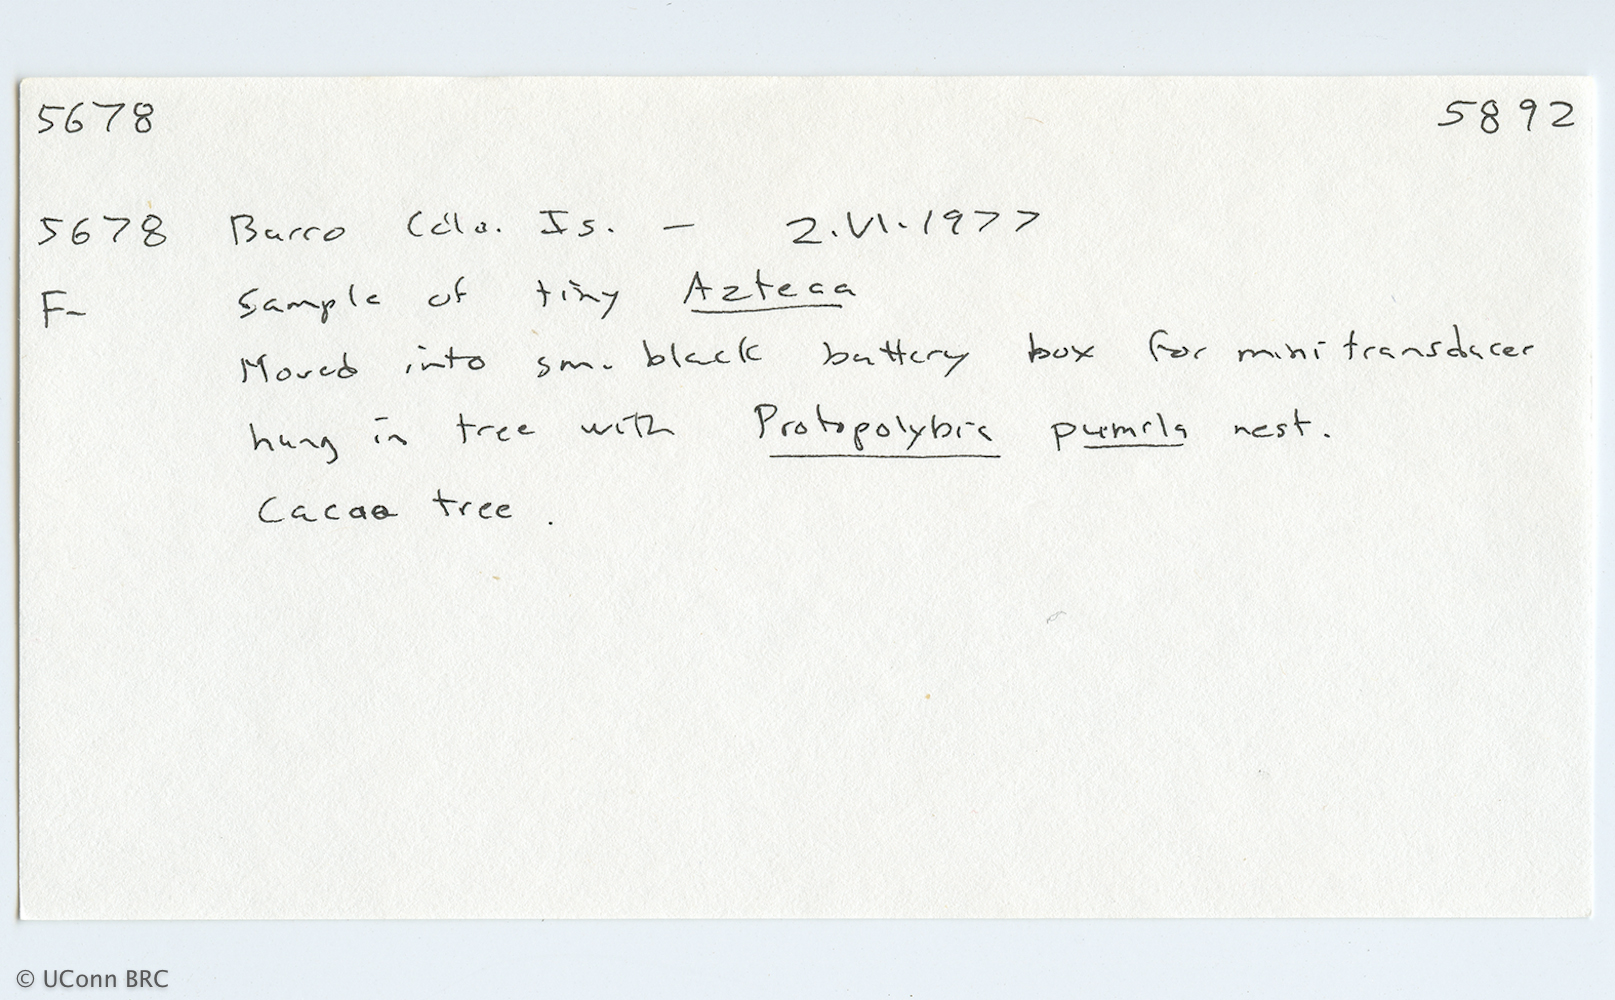 5678 5892
5678 Barro Cdlo. Is. - 2.VI.1977
F- Sample of tiny Azteca
Moved into sm. black battery box for mini transducer
hung in tree with Protopolybia pumila nest.
Cacao tree.
© UConn BRC